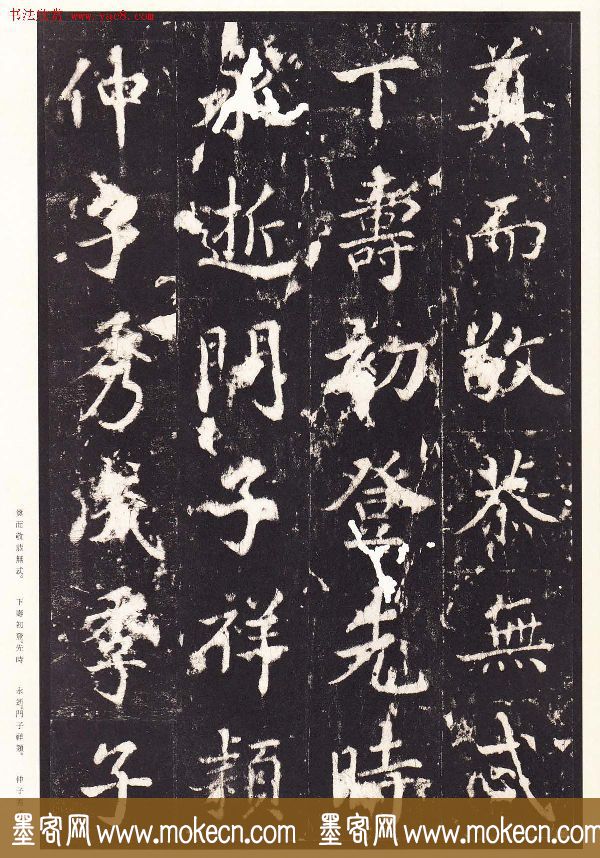 书法欣赏 www.yac8.com
而敬恭無忒
下壽初登先時
永逝門子祥
仲字秀季子
而敬恭無忒。 下壽初登，先時 永逝。門子祥
墨客网 www.mokecn.com 墨客网 www.mokecn.com